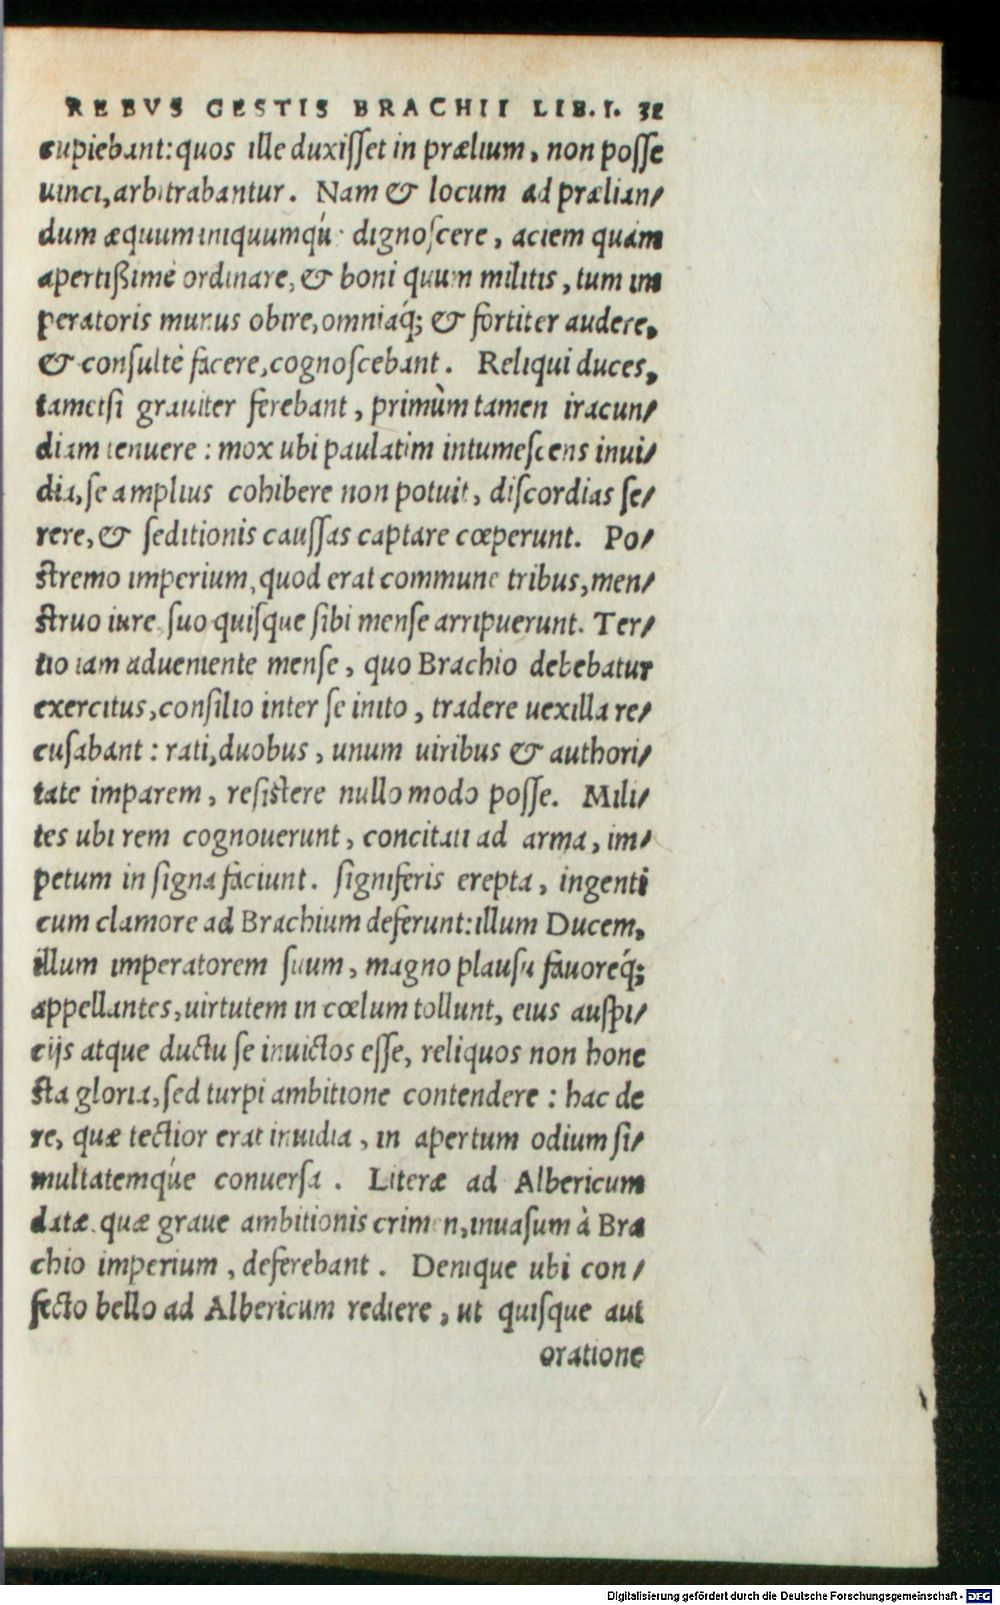 REBVS GESTIS BRACHII LIB. I. 31
cupiebant: quos ille duxiſſet in prælium, non poſſe
uinci, arbitrabantur. Nam & locum ad prælian/
dum æquum iniquumqú dignoſcere, aciem quàm
apertißimè ordinare, & boni quum militis, tum im
peratoris munus obire, omniaq́; & fortiter audere,
& conſultè facere, cognoſcebant. Reliqui duces,
tametſi grauiter ferebant, primùm tamen iracun/
diam tenuere: mox ubi paulatim intumeſcens inui/
dia, ſe amplius cohibere non potuit, diſcordias ſe/
rere, & ſeditionis cauſſas captare cœperunt. Po/
ſtremo imperium, quod erat commune tribus, men/
ſtruo iure ſuo quiſque ſibi menſe arripuerunt. Ter/
tio iam adueniente menſe, quo Brachio debebatur
exercitus, conſilio inter ſe inito, tradere uexilla re/
cuſabant: rati, duobus, unum uiribus & authori/
tate imparem, reſiſtere nullo modo poſſe. Mili/
tes ubi rem cognouerunt, concitati ad arma, im/
petum in ſigna faciunt. ſigniferis erepta, ingenti
cum clamore ad Brachium deferunt: illum Ducem,
illum imperatorem ſuum, magno plauſu fauoreq́;
appellantes, uirtutem in cœlum tollunt, eius auſpi/
cijs atque ductu ſe inuictos eſſe, reliquos non hone
ſta gloria, ſed turpi ambitione contendere: hac de
re, quæ tectior erat inuidia, in apertum odium ſi/
multatemqúe conuerſa. Literæ ad Albericum
datæ quæ graue ambitionis crimen, inuaſum à Bra
chio imperium, deferebant. Denique ubi con/
fecto bello ad Albericum rediere, ut quiſque aut
oratione
Digitalisierung gefördert durch die Deutsche Forschungsgemeinschaft - DFG